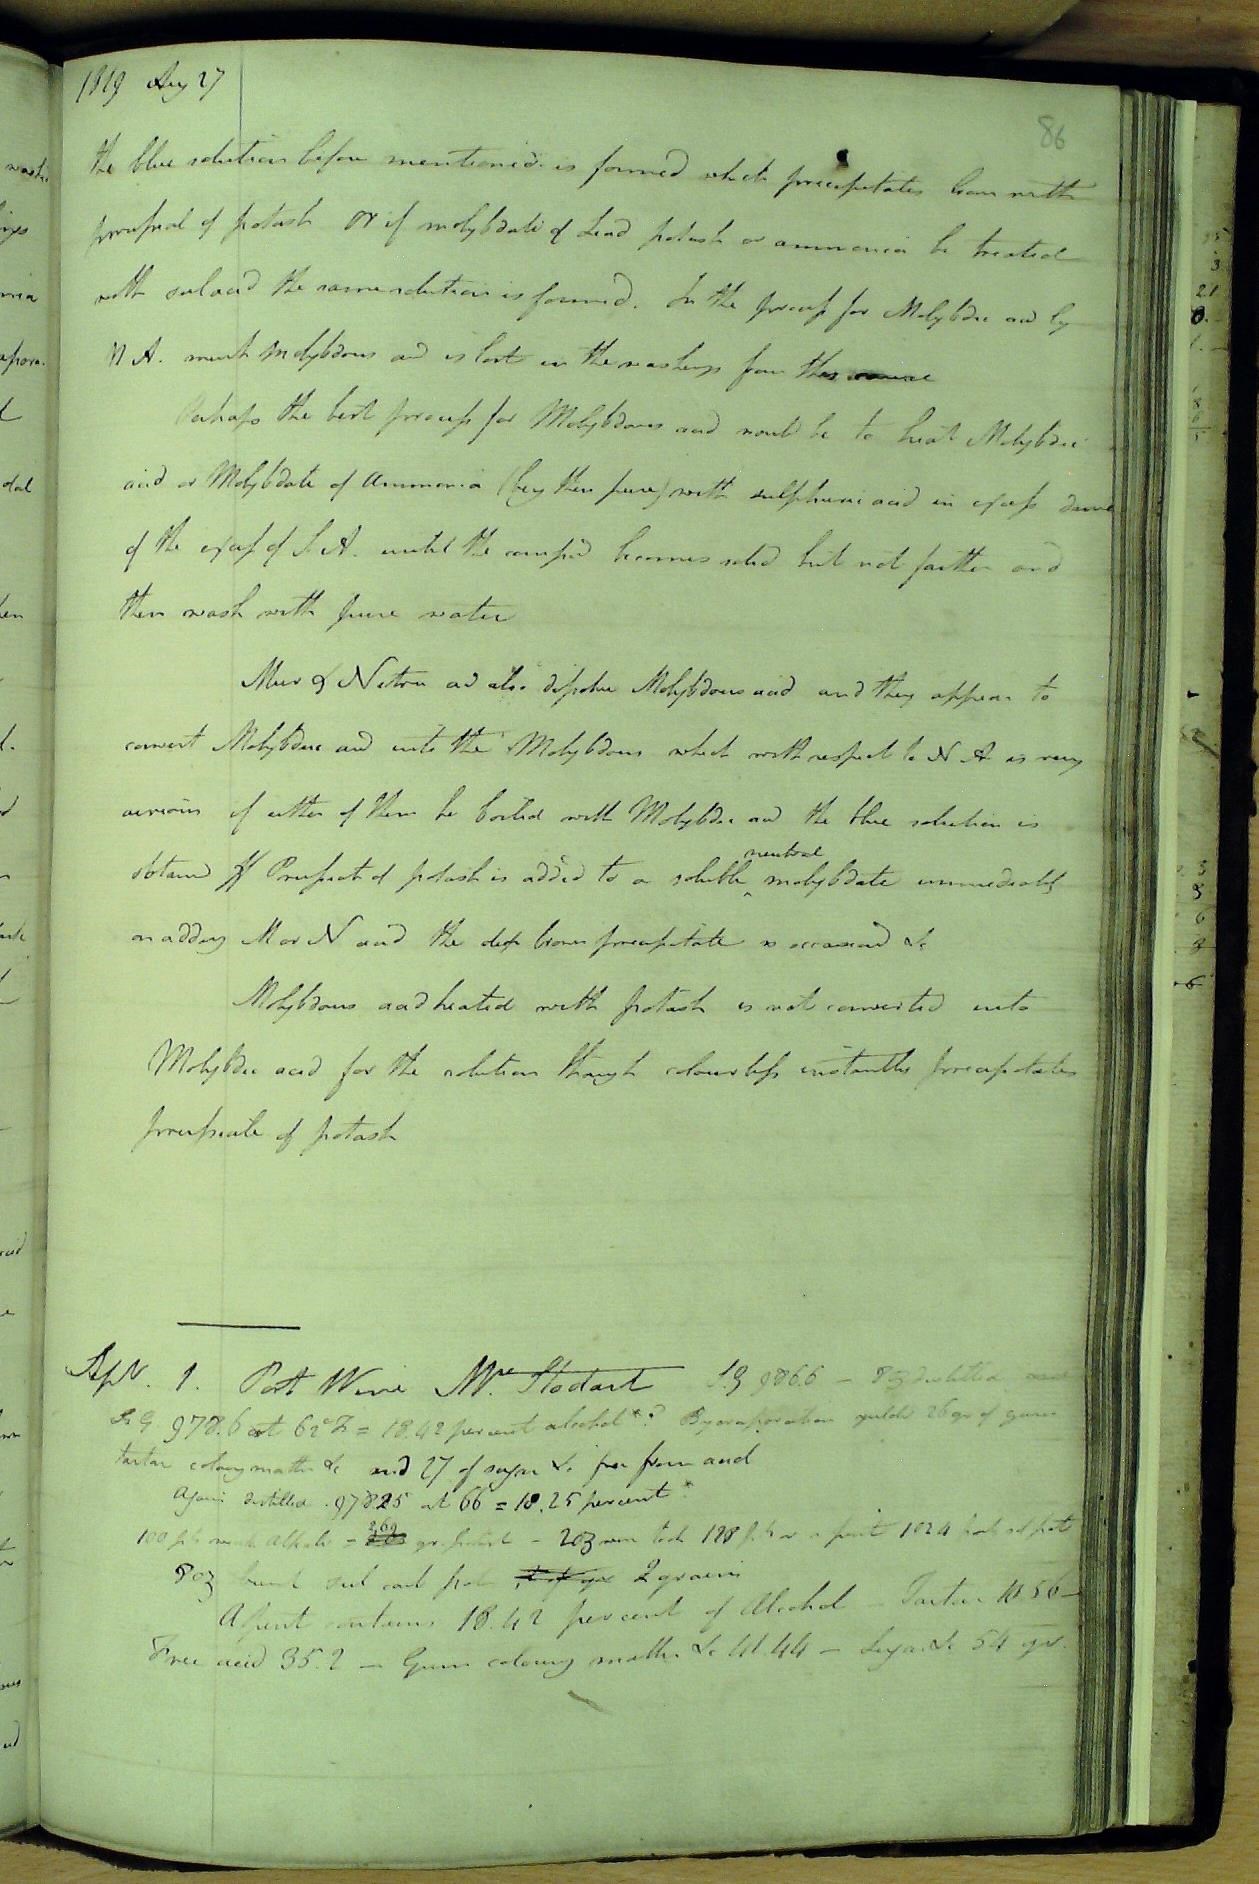 1819 Aug 27
86
the blue solution before mentioned is formed which precipitates brown with
prussiat of potash or if molybdate of Lead potash or ammonia be treated
with sul acid the same solution is formed. In the process for Molybdic acid by
N A. much Molybdous acid is lost in the washings from this cause
Perhaps the best process for Molybdous acid would be to heat Molybdic
acid or Molybdate of Ammonia (being then pure) with sulphuric acid in excess drive
of the excess of S A. until the compd becomes solid but not farther and
then wash with pure water
Mur & Nitric acid also dissolve Molybdous acid and they appear to
convert Molybdic acid into the Molybdous which with respect to N A is very
curious if either of them be boiled with Molybdic acid the blue solution is
neutral
obtained If Prussiat of potash is added to a soluble molybdate immediately
on adding M or N acid the deep brown precipitate is occasioned &c
Molybdous acid heated with potash is not converted into
Molybdic acid for the solution though colourless instantly precipitates
prussiate of potash
Sept. 1. Port Wine Mr. Stodart S.G 986.6 - 8 oz distilled and
S G 978.6 at 62° F = 18.42 per cent alcohol By evaporation yields 26 gr of gum
tartar colouring matter &c and 27 of sugar &c free from acid
Again distilled 978.25 at 66 = 18.25 per cent
100 pts weak Alkali = 2.69 gr. potash - 2 oz wine took 128 pts or a pint 1024 parts
8 oz burnt sub carb pot 2 grains
A pint contains 18.42 per cent of Alcohol - Tartar 10.56 -
Free acid 35.2 - Gum colouring matter &c 41.44 - Sugar &c 54 gr.